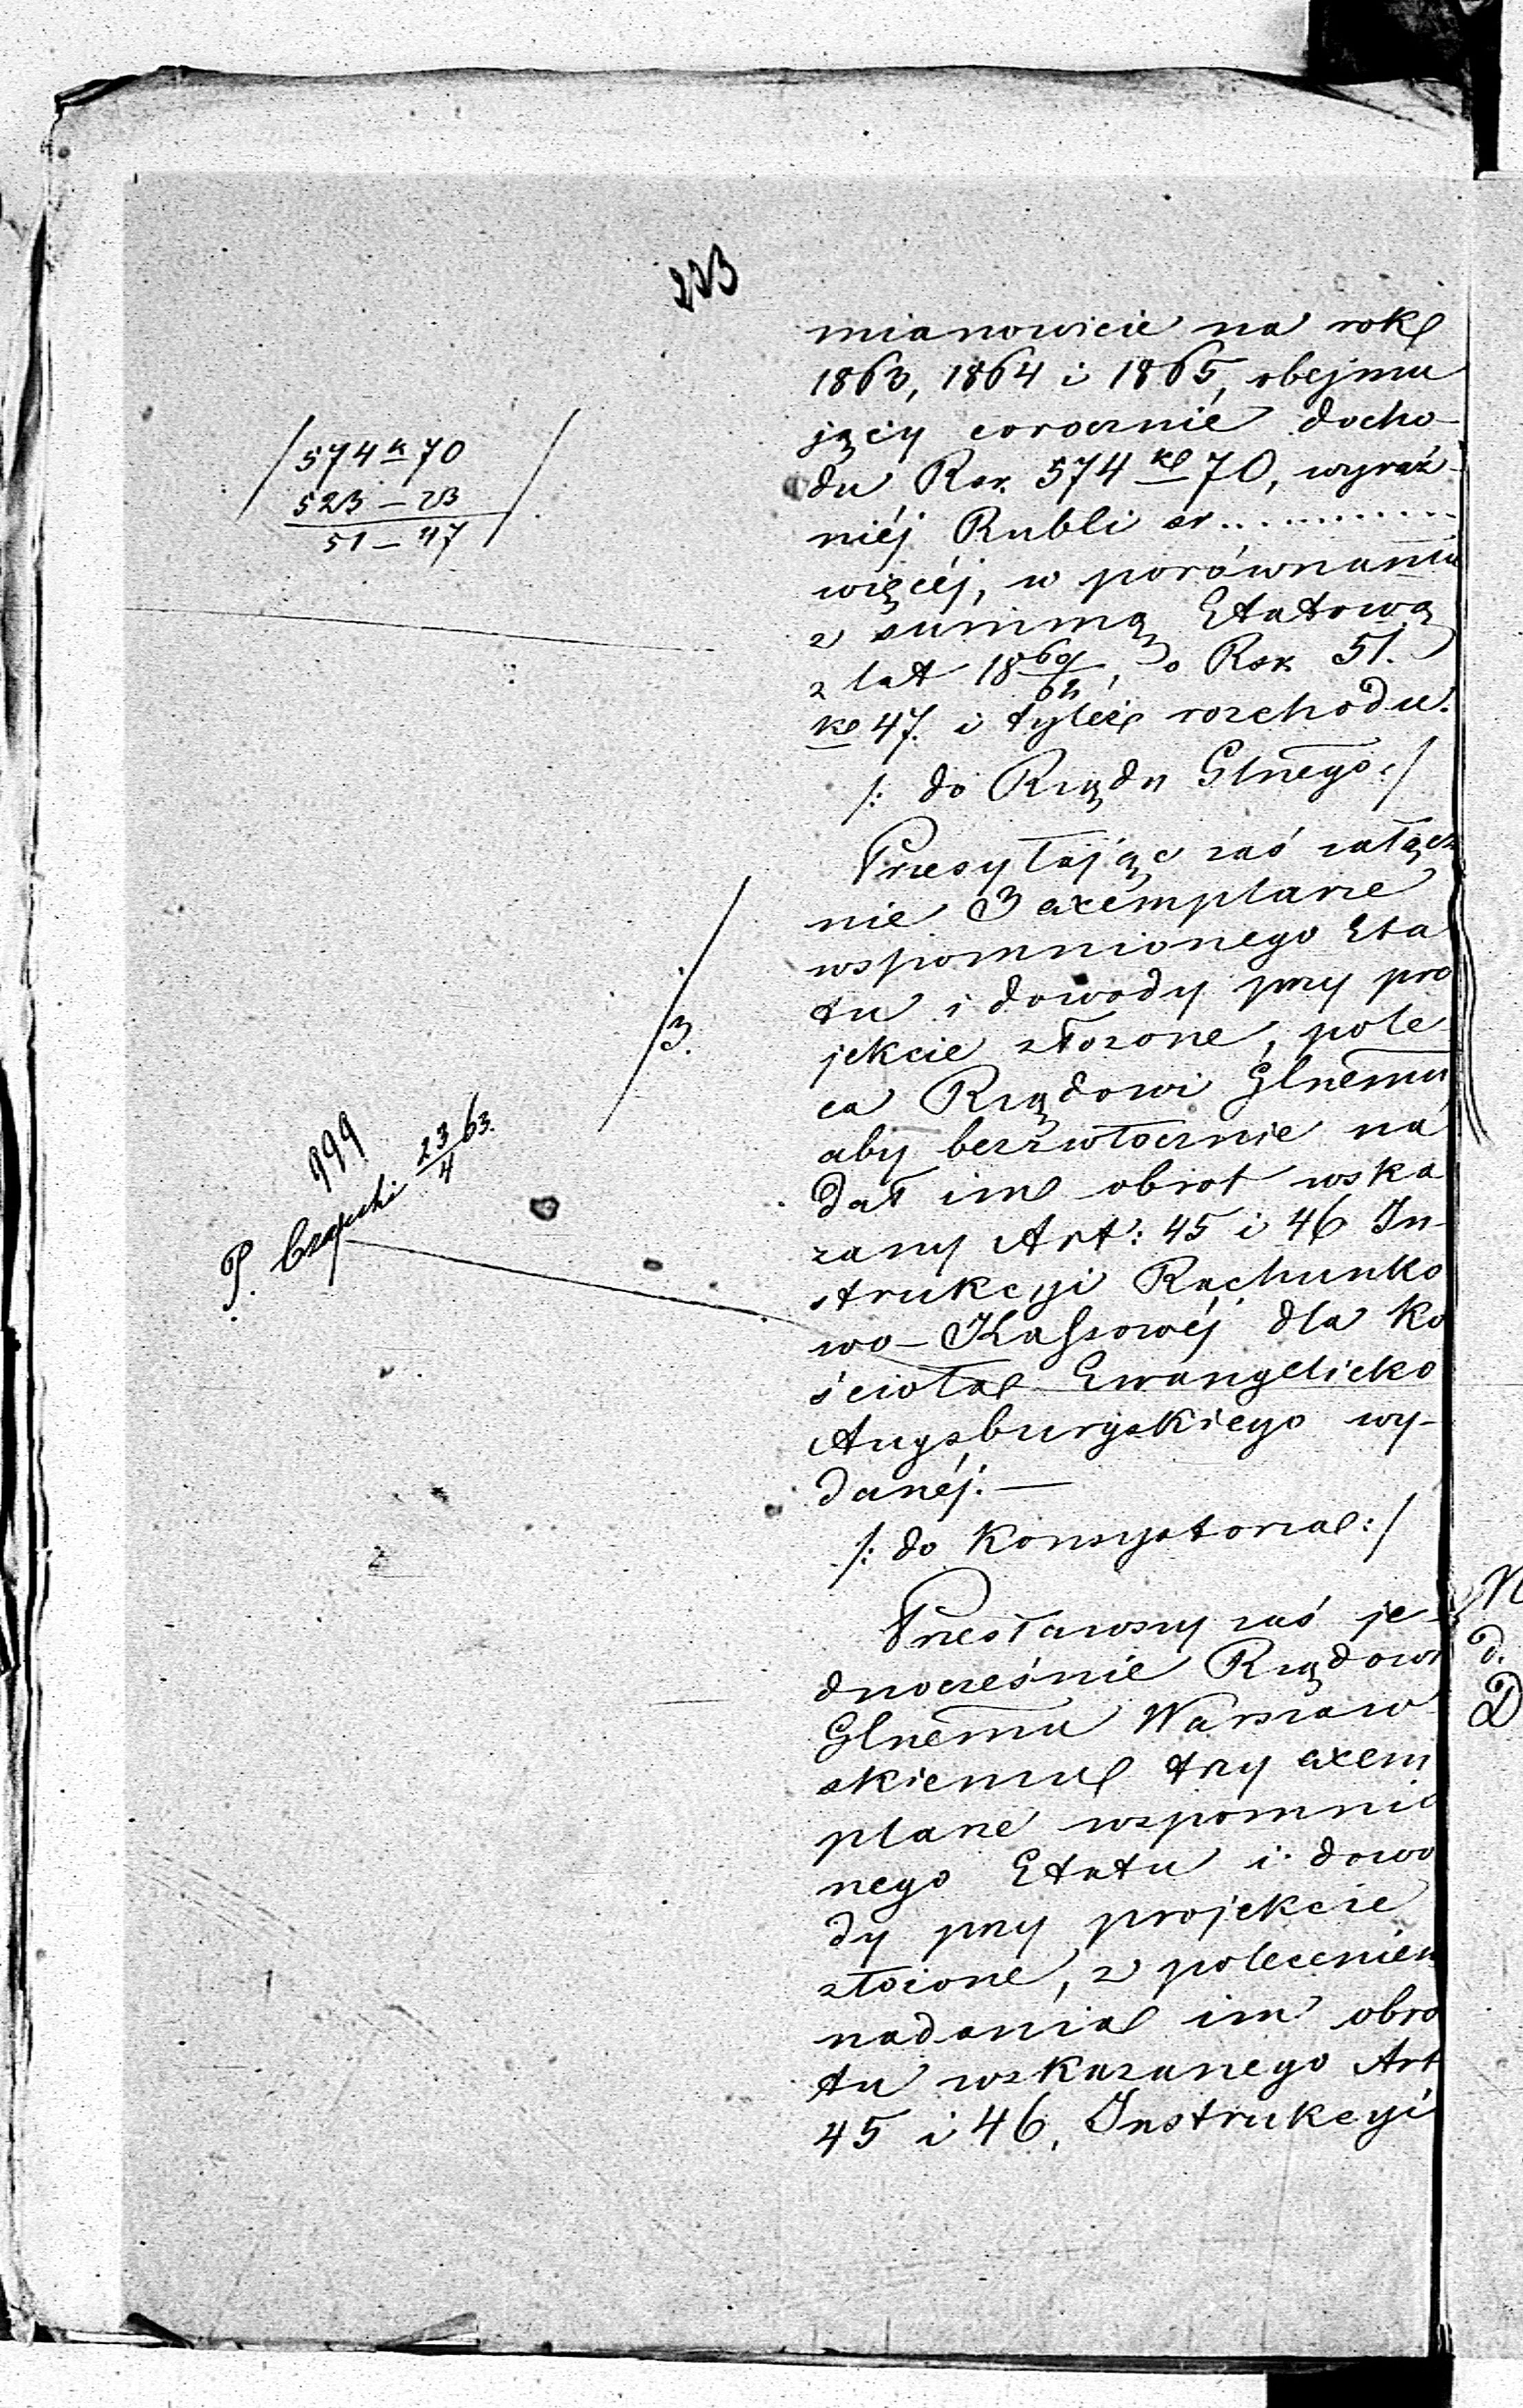 223
574 k 70
523 – 23
51 – 47
mianowicie na rok
1863, 1864 i 1865, obejmu
jący corocznie docho-
du Rsr. 574 k 70, wyraź-
niéj Rubli sr. . . . . . . . . . . .
więcéj, w porównaniu
z summą Etatową
z lat 1860/62, o Rsr. 51.
k 47. i tyleż rozchodu.
/: do Rządu Glnego :/
Przesyłając zaś załącz
nie 3 exemplarze
wspomnionego Eta
tu i dowody przy pro
jekcie złożone, pole
ca Rządowi Glnemu
aby bezzwłocznie na
dał im obrot wska
zany Art: 45 i 46 In-
strukcyi Rachunko
wo-Kassowéj dla Ko
ścioła Ewangelicko
Augsburgskiego wy-
danéj. —
/: do Konsystorza :/
Przesławszy zaś je-
dnocześnie Rządowi
Glnemu Warszaw
skiemu trzy exem
plarze wspomnio
nego Etatu i dowo
dy przy projekcie
złożone, z poleceniem
nadania im obro
tu wskazanego Art
45 i 46. Instrukcyi
3.
999
P. 23/4 63.
N
d.
D